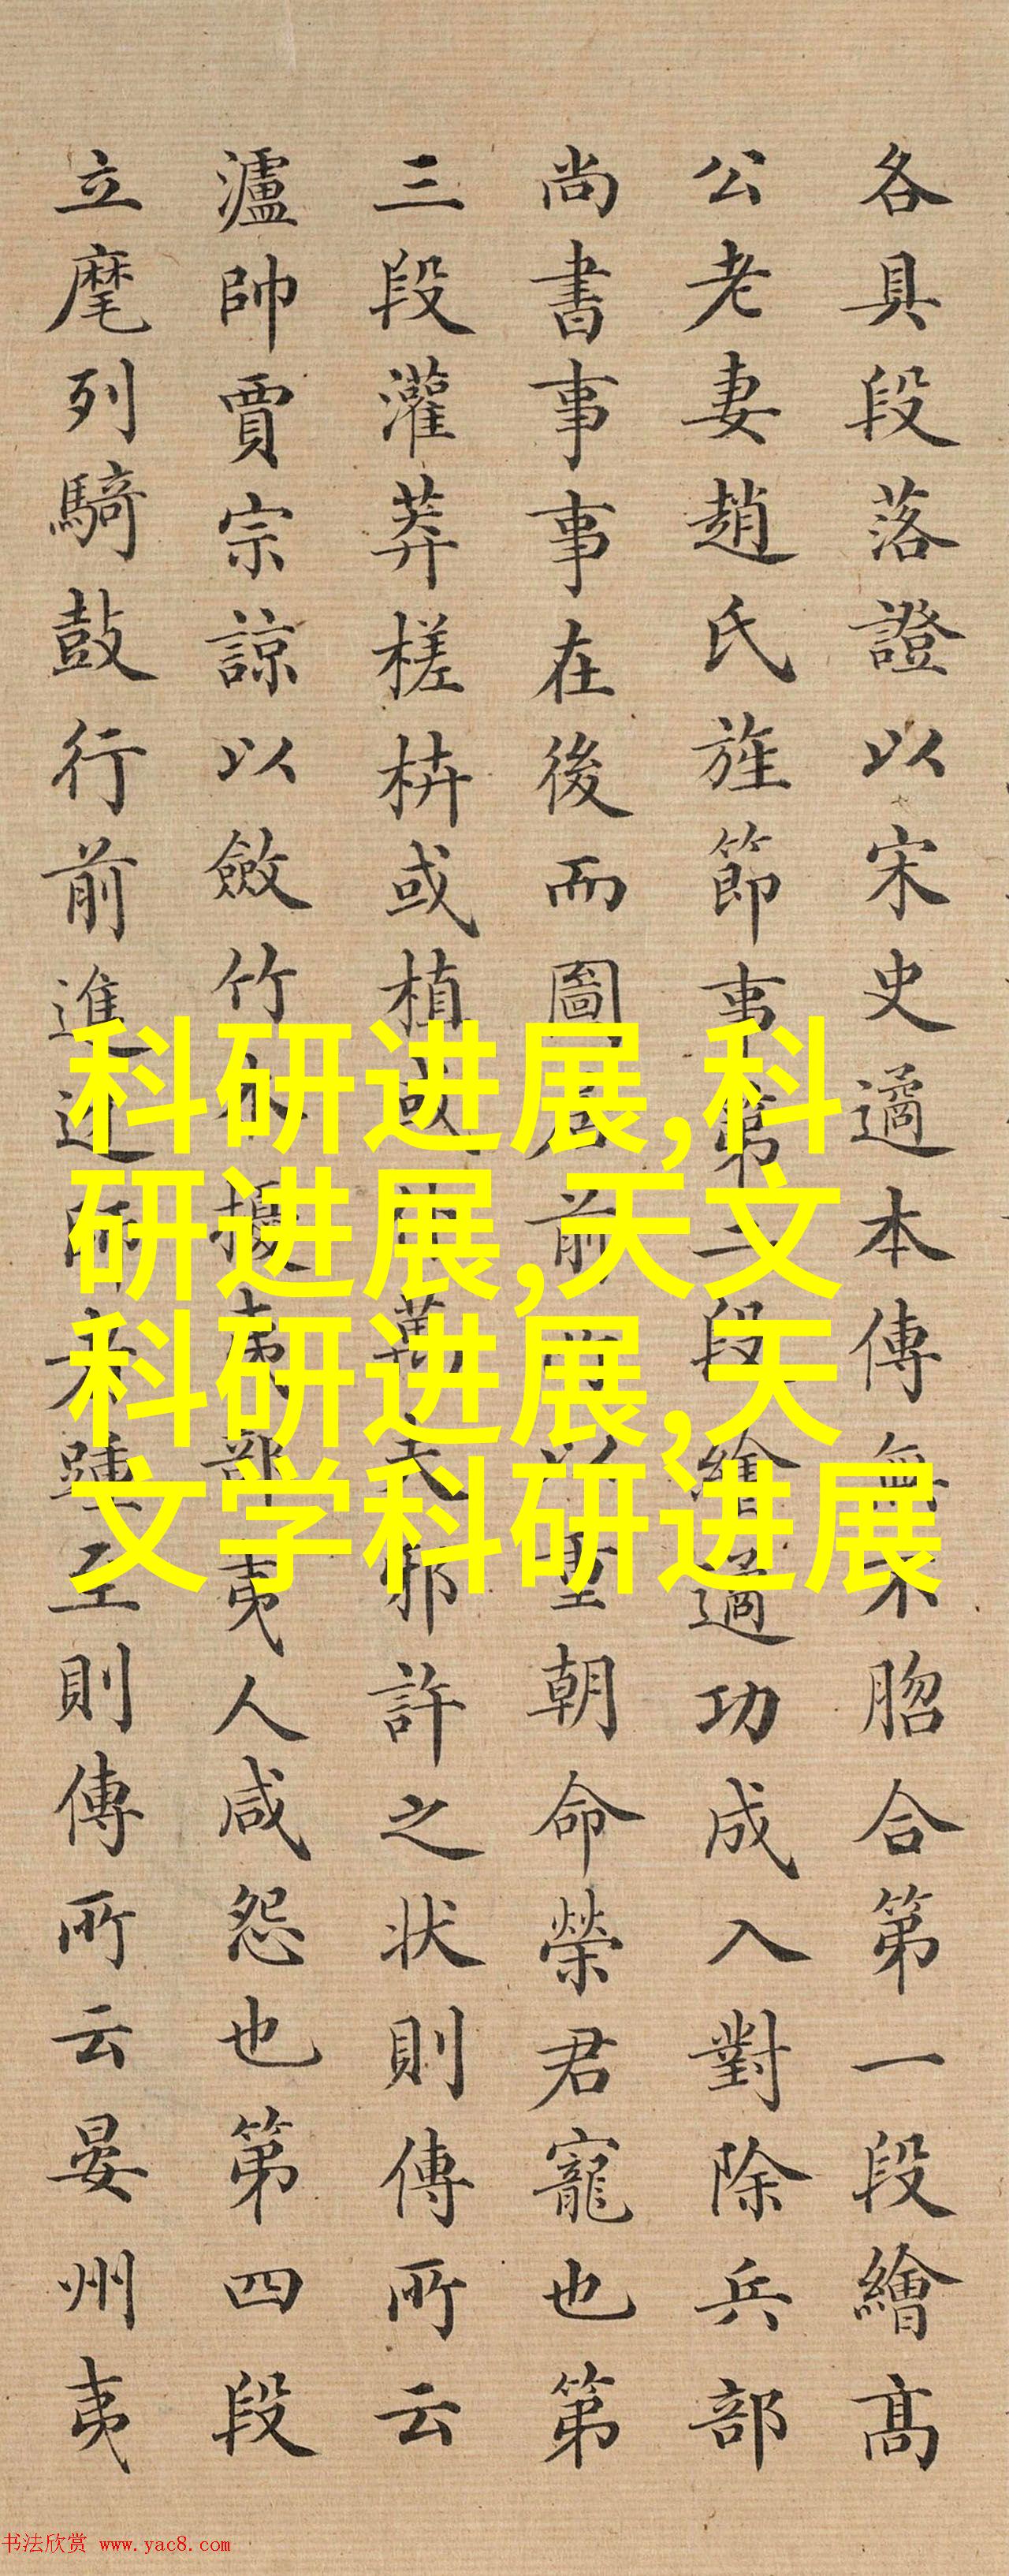 各具段落證以宋史遹本傳無不脗合第一段繪高
公老妻趙氏旌節事第二段繪遹功成入對除兵部
尚書事事在後而圖居前者以重朝命榮君寵也第
三段灌莽槎枿或植或仆萬夫邪許之狀則傳所云
瀘帥賈宗諒以斂竹木擾夷部夷人咸怨也第四段
立麾列騎鼓行前進述師未踵至則傳所云晏州夷
科研进展,科
研进展,天文
科研进展,天
文学科研进展
书法欣赏 www.yac8.com